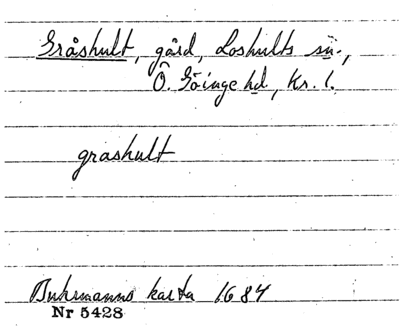 Gråshult, gård, Loshults sn.,
Ö. Göinge hd, Kr. l.
grashult
Buhrmanns karta 1684
Nr 5428